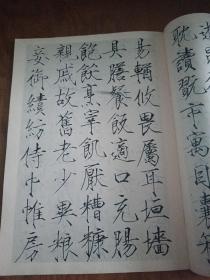 耽讀翫市寓目囊
易輶攸畏屬耳垣墻
具膳飡飯適口充腸
飽飫烹宰飢厭糟糠
親戚故舊老少異粮
妾御績紡侍巾帷房